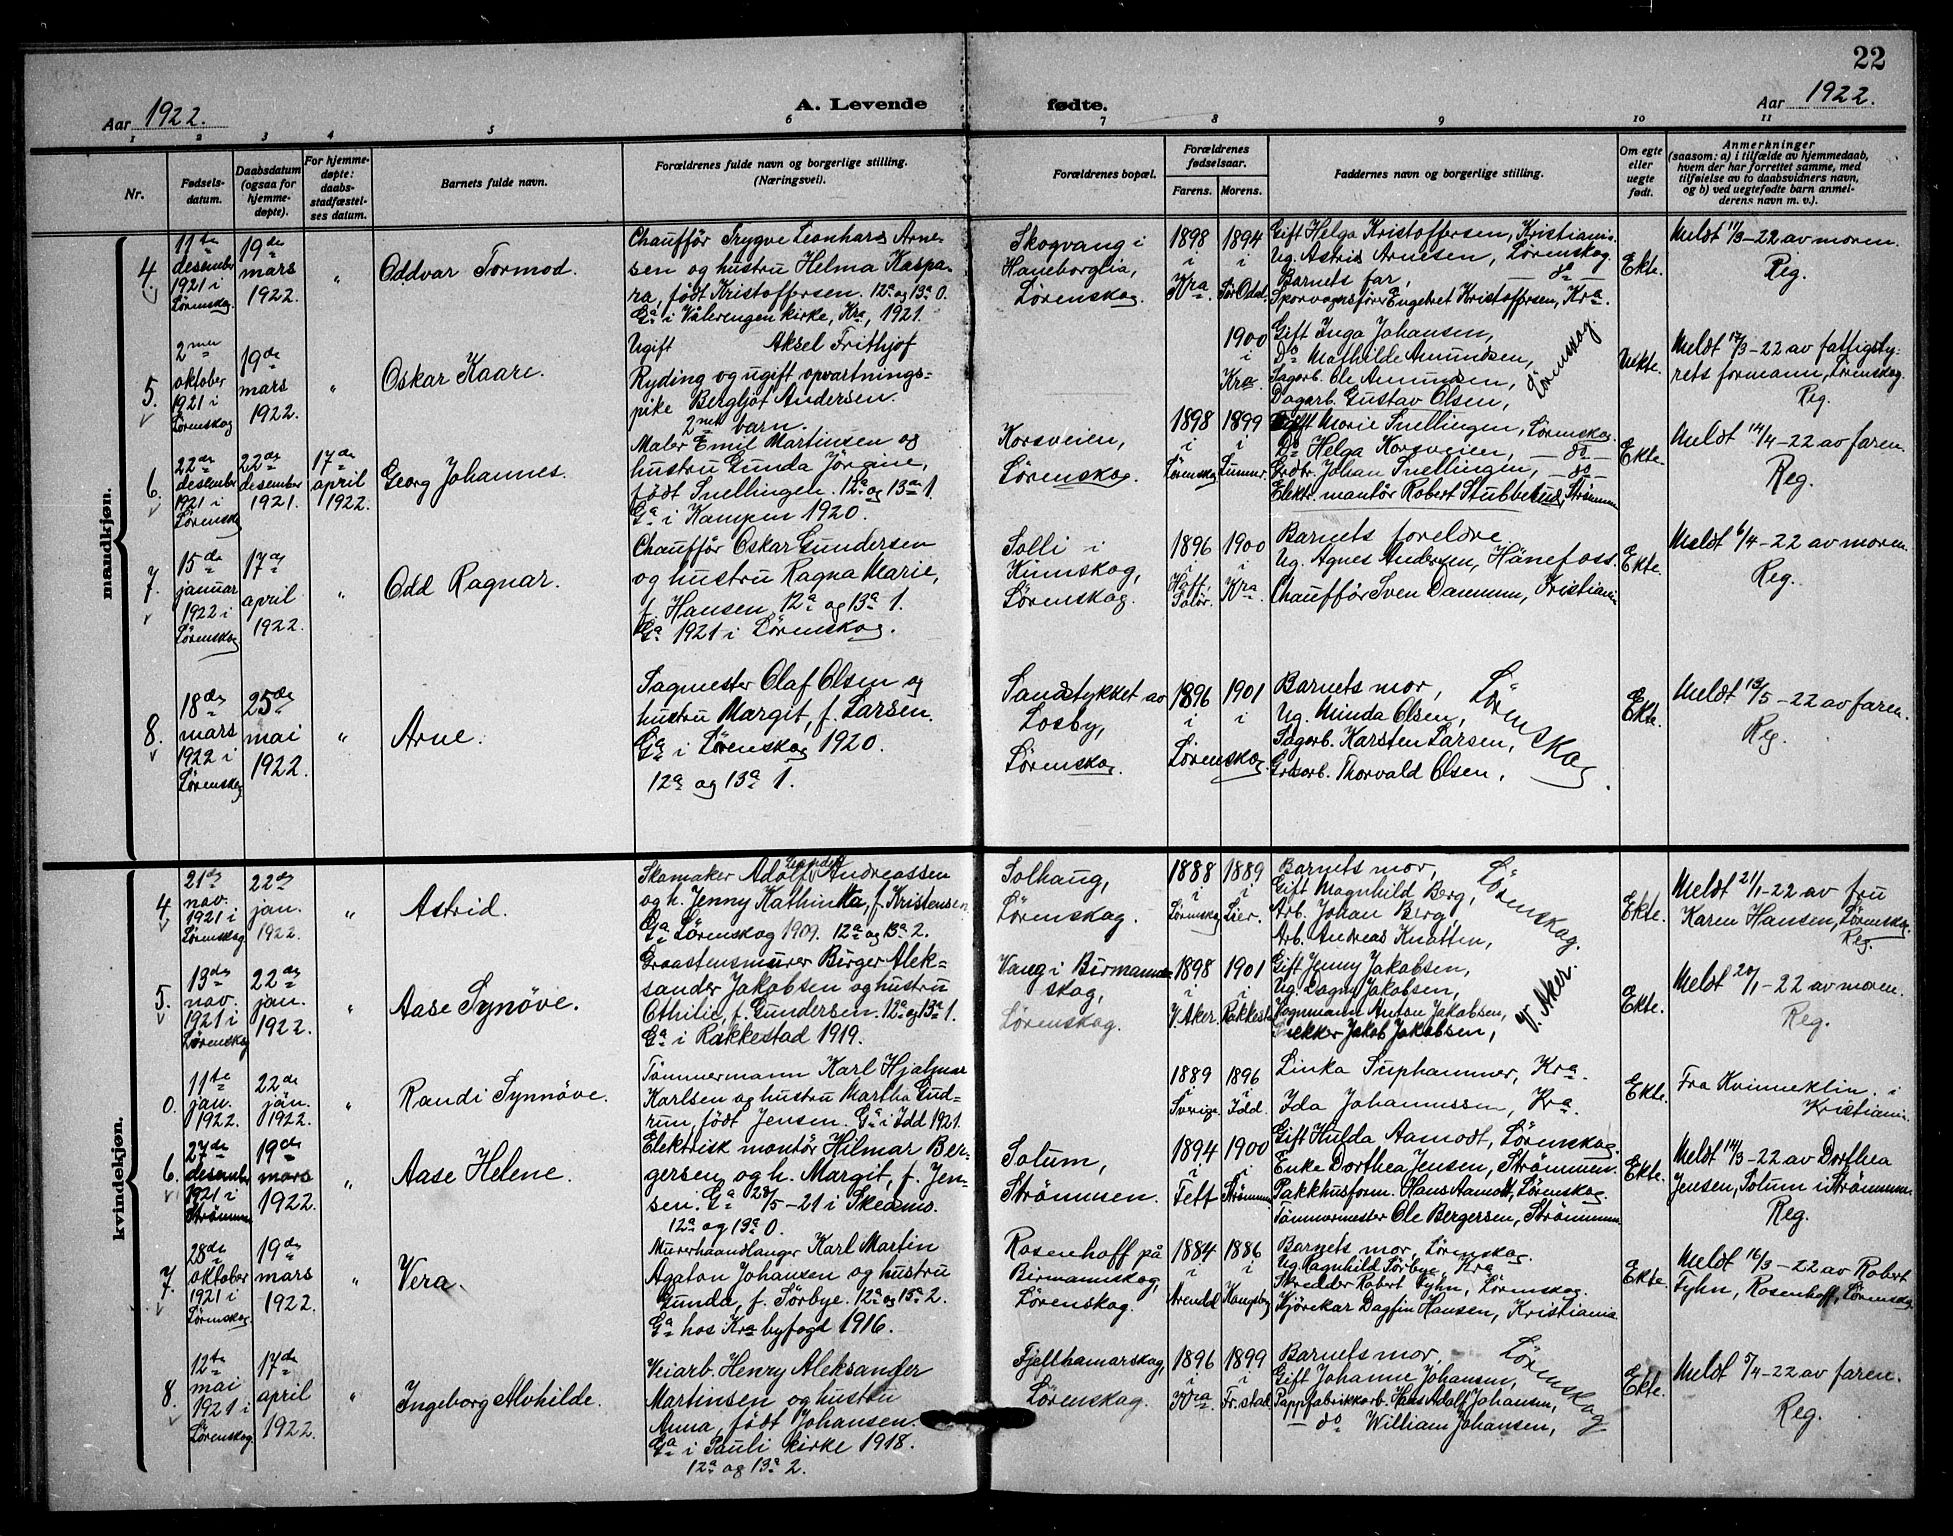 22
Aar 1922.
A. Levende fødte.
Aar 1922.
1 2 3 4 5 6 7 8 9 10 11
Nr.
Fødsels-
datum.
Daabsdatum
(ogsaa for
hjemme-
døpte).
For hjemme-
døpte:
daabs-
stadfæstel-
ses datum.
Barnets fulde navn.
Forældrenes fulde navn og borgerlige stilling.
(Næringsvei).
Forældrenes bopæl.
Forældrenes
fødselsaar.
Farens. Morens.
Faddernes navn og borgerlige stilling.
Om egte
eller
uegte
født.
Anmerkninger
(saasom: a) i tilfælde av hjemmedaab,
hvem der har forrettet samme, med
tilføielse av to daabsvidners navn,
og b) ved uegtefødte barn anmel-
derens navn m. v.).
mandkjøn.
4.
11te
desember
1921 i
Lørenskog.
19de
mars
1922.
"
Oddvar Tormod.
Chauffør Trygve Leonhard Arne-
sen og hustru Helma Kaspa-
ra, født Kristoffersen. 12a og 13a 0.
Ga i Vålerengen kirke, Kra, 1921.
Skogvang i
Haneborglia,
Lørenskog.
1898
i
Kra.
1894
i
Sør Odal.
Gift Helga Kristoffersen, Kristiania.
Ug. Astrid Arnesen, Lørenskog.
Barnets far, — do —
Sporvognsfører Engebret Kristoffersen, Kra.
Ekte.
Meldt 11/3-22 av moren.
Reg.
5.
2nen
oktober
1921 i
Lørenskog
19de
mars
1922.
"
Oskar Kaare.
Ugift Aksel Frithjof
Ryding og ugift opvartnings=
pike Bergljot Andersen.
2net barn.
1900
i
Kra.
Gift Inga Johansen,
Do Mathilde Amundsen,
Sagarb. Ole Amundsen,
Dagarb. Gustav Olsen,
Lørenskog.
Uekte.
Meldt 17/3-22 av fattigsty-
rets formann, Lørenskog.
Reg.
6.
22de
desember
1921 i
Lørenskog
22de
desember
1921.
17de
april
1922.
Georg Johannes.
Maler Emil Martinsen og
hustru Gunda Jørgine,
født Snellingen. 12a og 13a 1.
Ga i Kampen 1920.
Korsveien,
Lørenskog.
1898
i
Lørenskog
1899
i
Sunner.
Gift Marie Snellingen, Lørenskog.
Do Helga Korsveien, — do —
Grdbr. Johan Snellingen, — do —
Elektr. montør Robert Stubberud, Strømmen
Ekte.
Meldt 14/4-22 av faren.
Reg.
7.
15de
januar
1922 i
Lørenskog
17de
april
1922.
"
Odd Ragnar.
Chauffør Oskar Gundersen
og hustru Ragna Marie,
f. Hansen. 12a og 13a 1.
Ga 1921 i Lørenskog.
Solli i
Kinnskog,
Lørenskog.
1896
i
Hoff,
Solør.
1900
i
Kra.
Barnets foreldre.
Ug. Agnes Andersen, Hønefoss.
Chauffør Sven Dammen, Kristiania
Ekte.
Meldt 6/4-22 av moren.
Reg.
8.
18de
mars
1922 i
Lørenskog
25de
mai
1922.
"
Arne.
Sagmester Olaf Olsen og
hustru Margit, f. Larsen.
Ga i Lørenskog 1920.
12a og 13a 1.
Sandstykket av
Losby,
Lørenskog.
1896
i
1901
i
Lørenskog.
Barnets mor,
Ug. Minda Olsen,
Sagarb. Karsten Larsen,
Grdarb. Thorvald Olsen,
Lørenskog.
Ekte.
Meldt 19/5-22 av faren.
Reg.
kvindekjøn.
4
21de
nov.
1921 i
Lørenskog.
22de
jan.
1922.
"
Astrid.
Skomaker Adolf Leander Andreassen
og h. Jenny Kathinka, f. Kristensen.
Ga Lørenskog 1909. 12a og 13a 2.
Solhaug,
Lørenskog.
1888
i
Lørenskog
1889
i
Lier.
Barnets mor,
Gift Magnhild Berg,
Arb. Johan Berg,
Arb. Andreas Knatten,
Lørenskog.
Ekte.
Meldt 21/1-22 av fru
Karen Hansen, Lørenskog.
Reg.
5.
13de
nov.
1921 i
Lørenskog
22de
jan.
1922.
"
Aase Synøve.
Graastensmurer Birger Alek=
sander Jakobsen og hustru
Othilie, f. Gundersen. 12a og 13a 1.
Ga i Rakkestad 1919.
Vang i Birmanns-
skog,
Lørenskog.
1898
i
V. Aker.
1901
i
Rakkestad
Gift Jenny Jakobsen,
Ug. Dagny Jakobsen,
Vognmann Anton Jakobsen,
Snekker Jakob Jakobsen,
V. Aker.
Ekte.
Meldt 20/1-22 av moren.
Reg.
0.
11te
jan.
1922.
22de
jan.
1922.
"
Randi Synnøve.
Tømmermann Karl Hjalmar
Karlsen og hustru Martha Gud-
run, født Jensen. Ga i Idd 1921.
1889
i
Sverige.
1896
i
Idd.
Linka Suphammer, Kra.
Ida Johannessen, Kra.
Ekte.
Fra Kvinneklin. i
Kristiania.
6.
27de
desember
1921 i
Strømmen
19de
mars
1922.
"
Aase Helene.
Elektrisk montør Hilmar Ber-
gersen og h. Margit, f. Jen-
sen. Ga 28/5-21 i Skedsmo.
12a og 13a 0.
Solum,
Strømmen.
1894
i
Fett
1900
i
Strømmen
Gift Hulda Aamodt, Lørenskog.
Enke Dorthea Jensen, Strømmen.
Pakkhusform. Hans Aamodt, Lørenskog.
Tømmermester Ole Bergersen, Strømmen.
Ekte.
Meldt 14/3-22 av Dorthea
Jensen, Solum i Strømmen
Reg.
7.
28de
oktober
1921 i
Lørenskog.
19de
mars
1922.
"
Vera.
Murerhaandlanger Karl Martin
Agaton Johansen og hustru
Gunda, f. Sørbye. 12a og 13a 2.
Ga hos Kra byfogd 1916.
Rosenhoff på
Birmannskog,
Lørenskog.
1884
i
Arendal
1886
i
Kongsberg
Barnets mor, Lørenskog.
Ug. Ragnhild Sørbye, Kra
Skredder Robert Fyhn, Lørenskog.
Kjørekar Dagfin Hansen, Kristiania
Ekte.
Meldt 16/3-22 av Robert
Fyhn, Rosenhoff, Lørenskog
8.
12te
mai
1921 i
Lørenskog.
17de
april
1922.
"
Ingeborg Alvhilde.
Veiarb. Henry Aleksander
Martinsen og hustru
Anna, født Johansen.
Ga i Pauli kirke 1918.
12a og 13a 2.
Fjellhamarskog,
Lørenskog.
1896
i
Kra.
1899
i
Fr.stad.
Barnets mor,
Gift Johanne Johansen,
Pappfabrikkarb. Hans Adolf Johansen,
— do William Johansen,
Lørenskog
Ekte.
Meldt 5/4-22 av faren.
Reg.